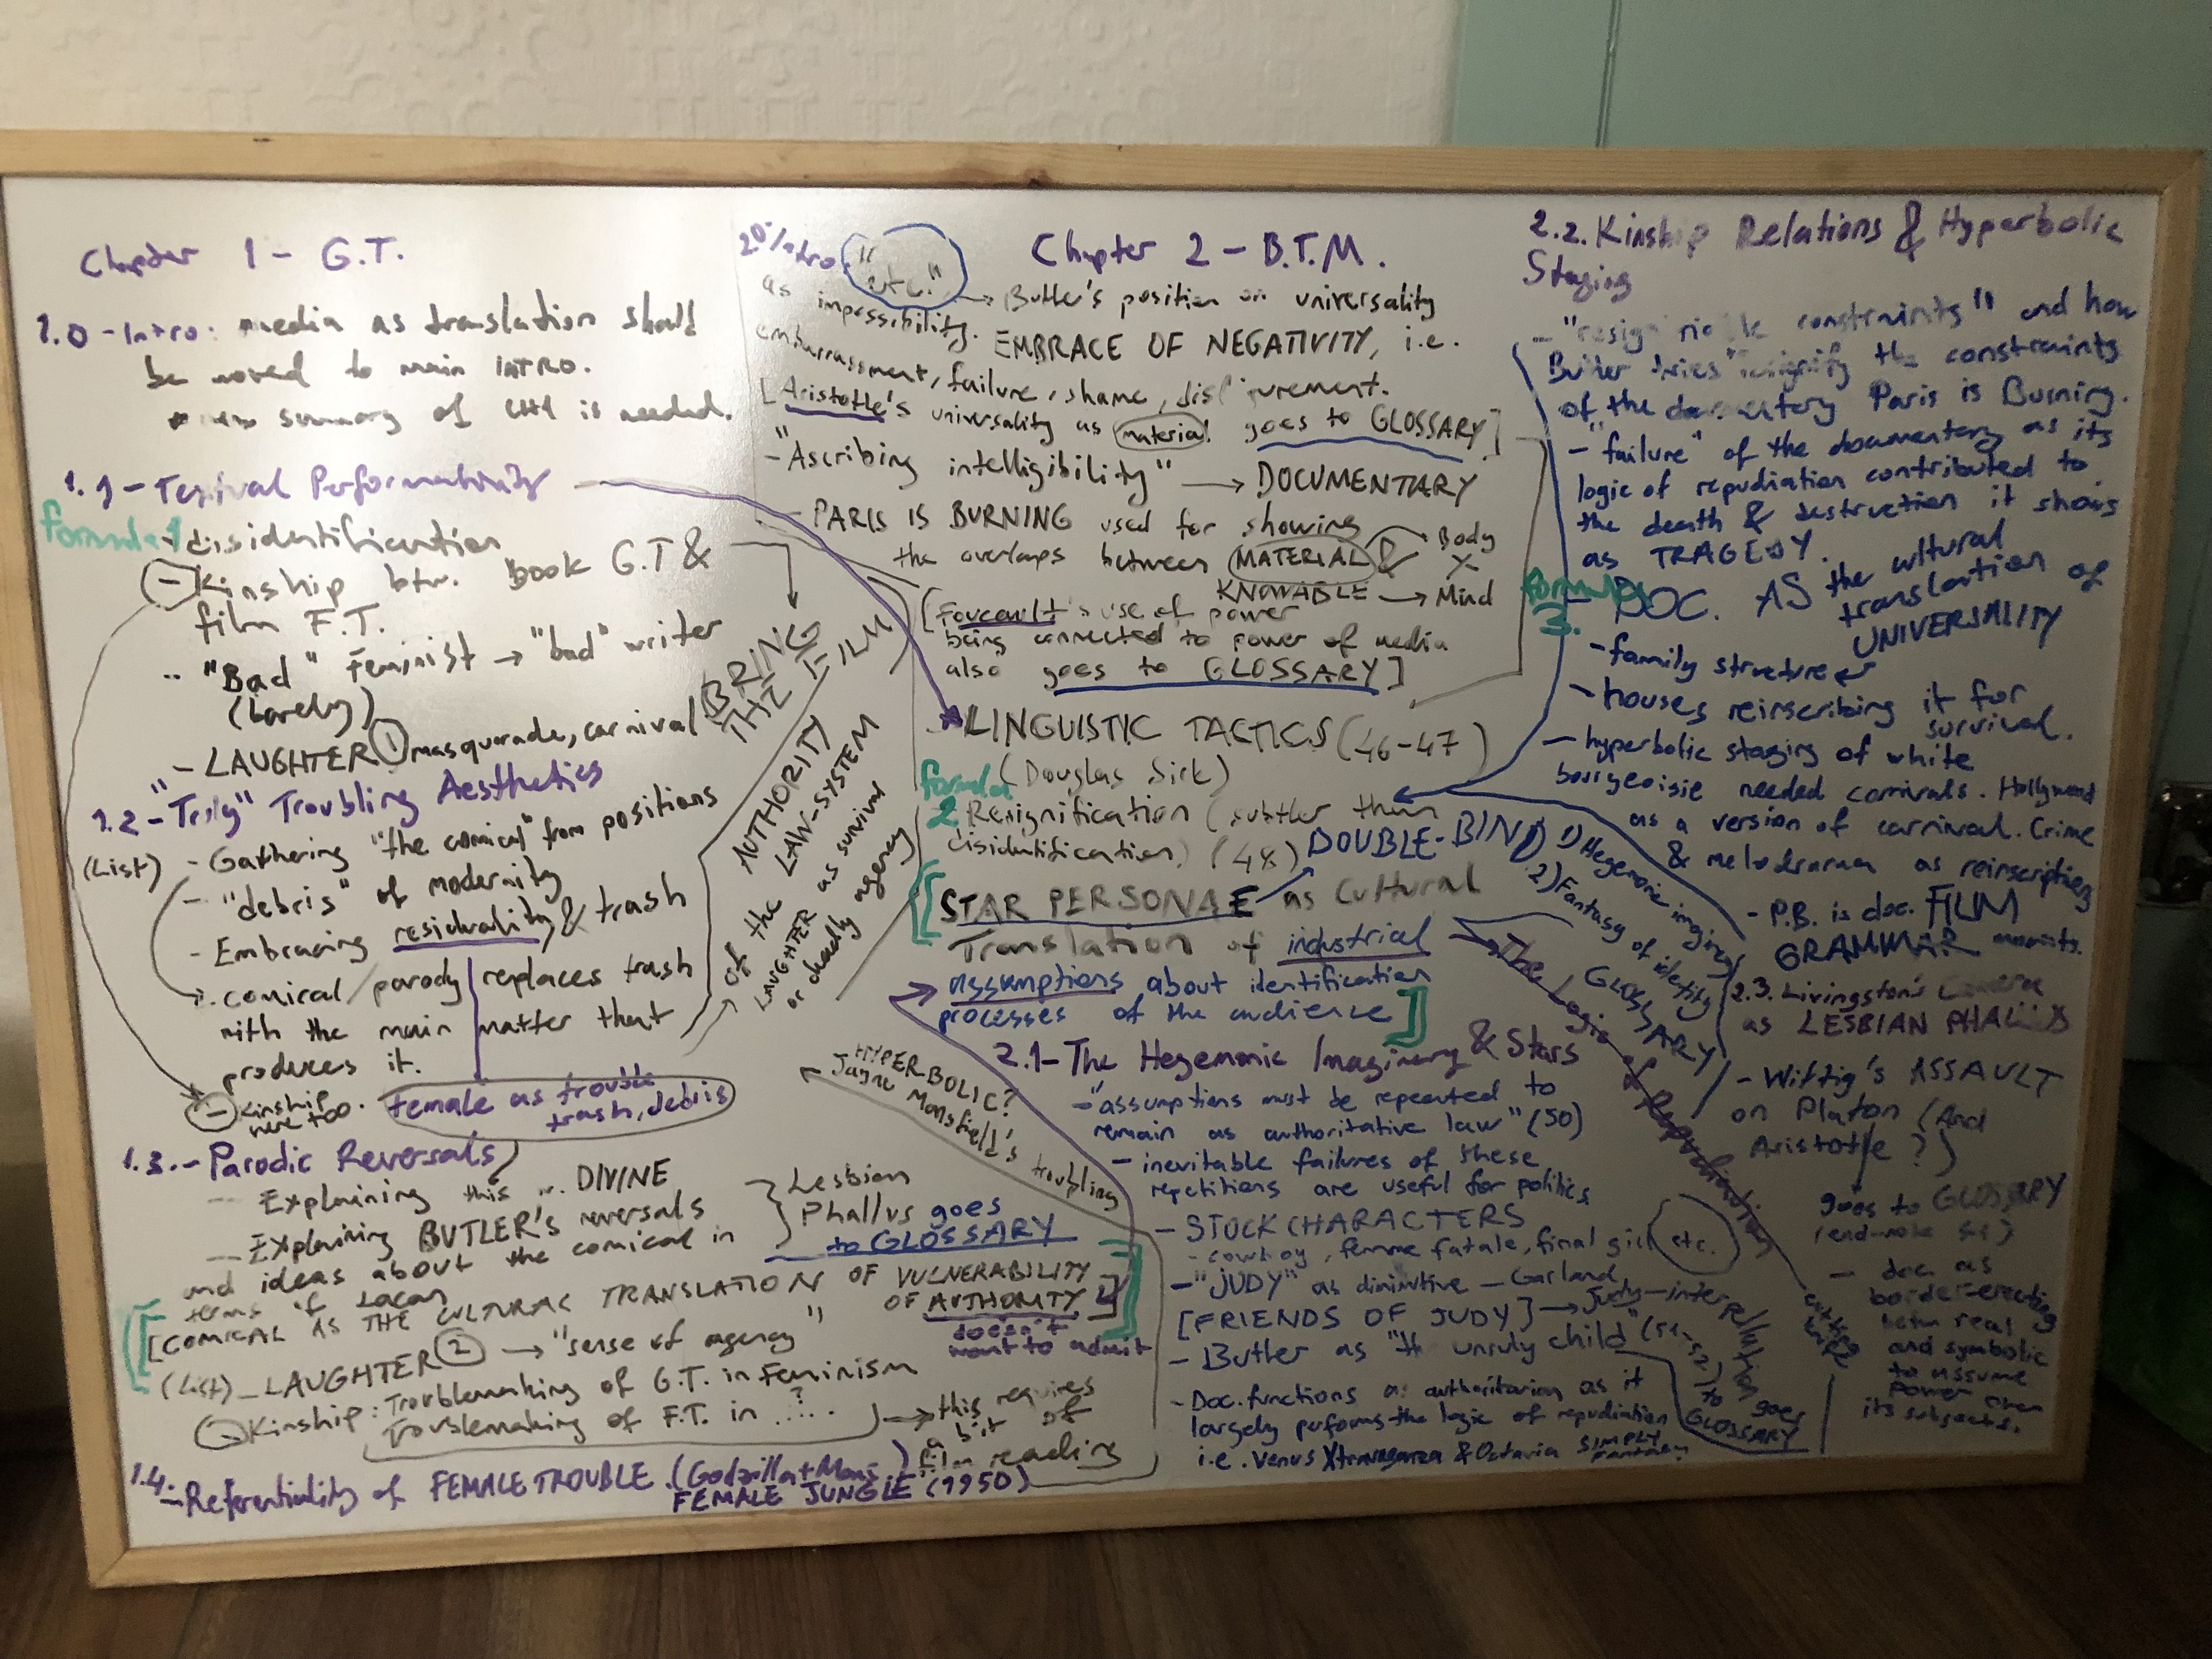 Chapter 1 - G.T.
1.0 - Intro: media as translation should
be moved to main INTRO.
new summary of CH1 is needed.
1.1 - Textual Performativity
formula 1
- disidentification
- Kinship btw. Book G.T &
film F.T.
- "Bad" Feminist → "bad" writer
(barely)
- LAUGHTER 1 masquerade, carnival
BRING
THE FILM
1.2 - "Truly" Troubling Aesthetics
(List) - Gathering "the comical" from positions
- "debris" of modernity
- Embracing residuality & trash
- comical / parody replaces trash
with the main matter that
produces it.
- Kinship
here too.
female as trouble
trash, debris
AUTHORITY
of the LAW-SYSTEM
LAUGHTER as survival
or deadly agency
1.3. - Parodic Reversals
- Explaining this w. DIVINE
- Explaining BUTLER's reversals
and ideas about the comical in
terms of Lacan
Lesbian
Phallus goes
to GLOSSARY
[COMICAL AS THE CULTURAL TRANSLATION OF VULNERABILITY
OF AUTHORITY]
doesn't
want to admit
(List) - LAUGHTER 2 → "sense of agency"
- Kinship: Troublemaking of G.T. in Feminism
Troublemaking of F.T. in ..?..
→ this requires
a bit of
film reading
1.4. - Referentiality of FEMALE TROUBLE. (Godzilla + Mans )
FEMALE JUNGLE (1950)
2.0. Intro. "etc."
Chapter 2 - B.T.M.
→ Butler's position on universality
as impossibility. EMBRACE OF NEGATIVITY, i.e.
embarrassment, failure, shame, disfigurement.
[Aristotle's universality as material goes to GLOSSARY]
- "Ascribing intelligibility" → DOCUMENTARY
- PARIS IS BURNING used for showing
the overlaps between MATERIAL & Body
X
KNOWABLE → Mind
[Foucault's use of power
being connected to power of media
also goes to GLOSSARY]
LINGUISTIC TACTICS (46-47)
(Douglas Sirk)
formula
2 Resignification (subtler than
disidentification) (48)
DOUBLE-BIND 1) Hegemonic imaginary
2) Fantasy of identity
[STAR PERSONAE as Cultural
Translation of industrial
assumptions about identification
processes of the audience]
The Logic of Repudiation
GLOSSARY
2.1 - The Hegemonic Imaginary & Stars
- "assumptions must be repeated to
remain as authoritative law" (50)
- inevitable failures of these
repetitions are useful for politics
HYPERBOLIC?
Jayne Mansfield's troubling
- STOCK CHARACTERS
- cowboy, femme fatale, final girl etc.
- "JUDY" as diminutive - Garland
[FRIENDS OF JUDY] → Judy-interpellation goes
to GLOSSARY
- Butler as "the unruly child" (51-52)
- Doc. functions as authoritarian as it
largely performs the logic of repudiation
i.e. Venus Xtravaganza & Octavia SIMPLY
Fantasy
2.2. Kinship Relations & Hyperbolic
Staging
- constraints" and how
Butler tries resignify the constraints
of the documentary Paris is Burning.
- "failure" of the documentary as its
logic of repudiation contributed to
the death & destruction it shows
as TRAGEDY.
formula
3.
- DOC. AS the cultural
translation of
UNIVERSALITY
- family structure
- houses reinscribing it for
survival.
- hyperbolic staging of white
bourgeoisie needed carnivals. Hollywood
as a version of carnival. Crime
& melodrama as reinscription
- P.B. is doc. FILM
GRAMMAR
2.3. Livingston's Camera
as LESBIAN PHALLUS
- Wittig's ASSAULT
on Platon (And
Aristotle?)
goes to GLOSSARY
- doc. as
border-erecting
betw real
and symbolic
to assume
power over
its subjects.